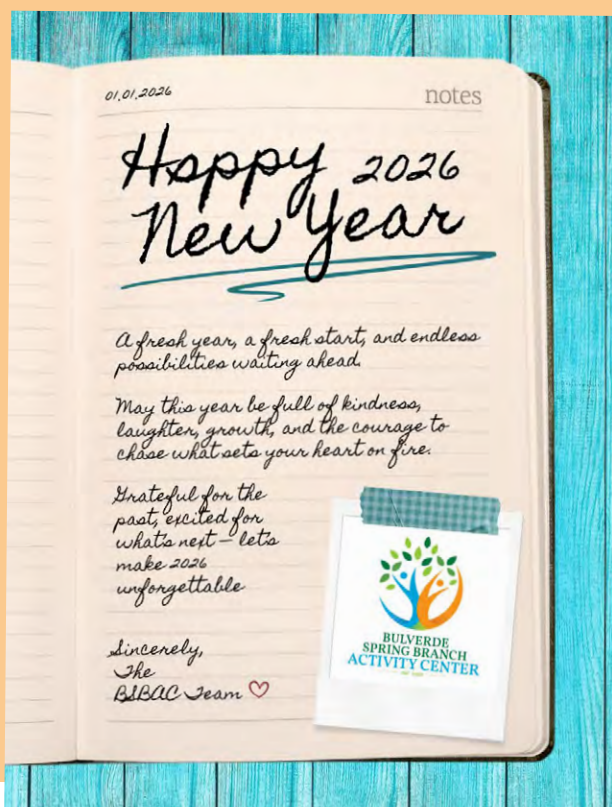 01.01.2026
notes
Happy 2026
New Year
A fresh year, a fresh start, and endless
possibilities waiting ahead.
May this year be full of kindness,
laughter, growth, and the courage to
chase what sets your heart on fire.
Grateful for the
past, excited for
what's next – let's
make 2026
unforgettable
Sincerely,
The
BSBAC Team
BULVERDE
SPRING BRANCH
ACTIVITY CENTER